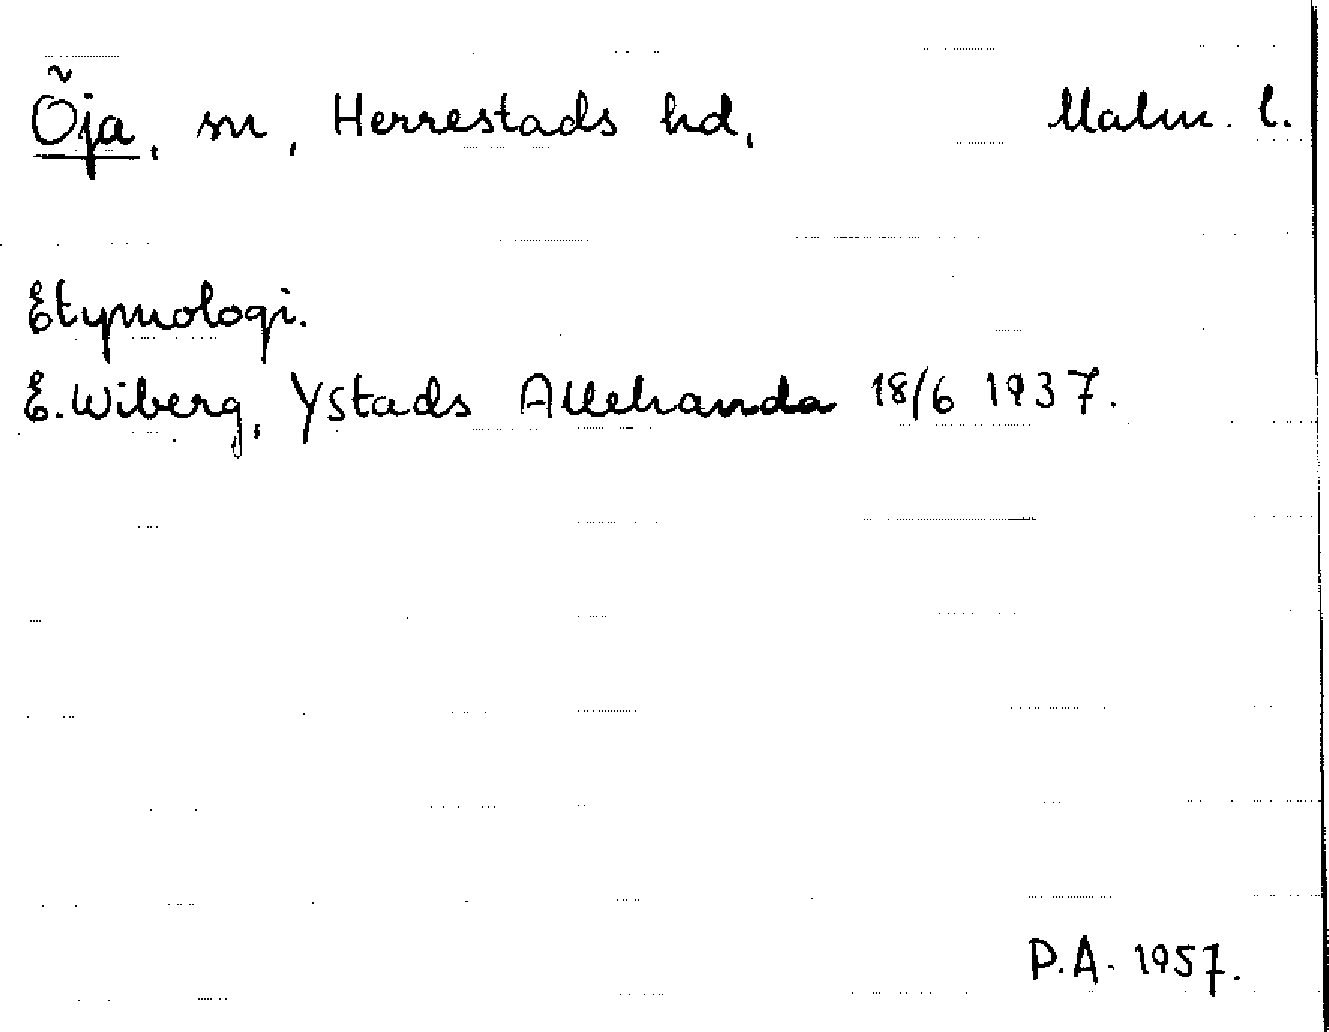 Öja, sn, Herrestads hd, Malm. l.
Etymologi.
E. Wiberg, Ystads Allehanda 18/6 1937.
P.A. 1957.